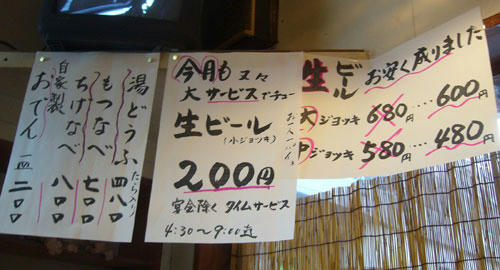 湯どうふ 四八〇
たら入り
もつなべ 七〇〇
ちげなべ 八〇〇
自家製
おでん 一皿 二〇〇
今月も又々
大サービスでチュー
生ビール
(小ジョッキ)
お一人一パイ
200円
宴会除く タイムサービス
4:30〜9:00迄
生ビール お安く成りました
大ジョッキ 680円‥‥600円
中ジョッキ 580円‥‥480円